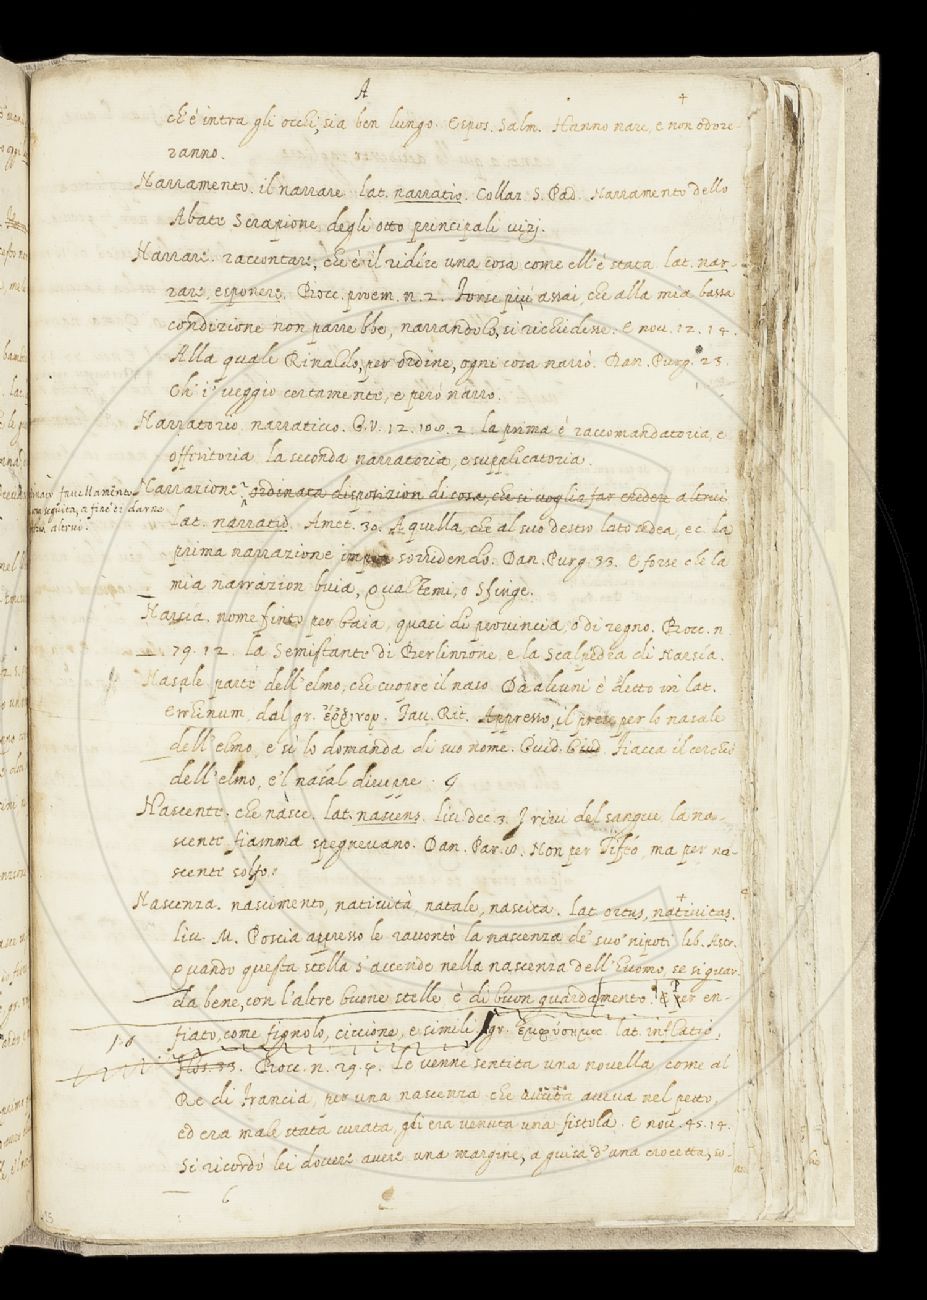 A
ch'è intra gli occhi, sia ben lungo. Espos. Salm. Hanno nare, e non odore-
ranno.
Narramento. il narrare lat. narratio. Collaz. S. Pad. Narramento dello
Abate Serapione degli otto principali uizj.
Narrare. raccontare, che è il ridire una cosa come ell'è stata. lat. nar-
rare, esponere. Bocc. proem. n. 2. Forse più assai, che alla mia bassa
condizione non parrebbe, narrandolo, si richiedesse. E nou. 12. 14.
Alla quale Rinaldo, per ordine, ogni cosa narrò. Dan. Purg. 23.
Ch' i' ueggio certamente, e però narro.
Narratorio. narratiuo. G.V. 12. 108. 2. la prima è raccomandatoria, e
offeritoria la seconda narratoria, e supplicatoria.
Narrazione. ordinata disposizion di cosa, che si uoglia far credere altrui
fauellamento
seguita, a fine di darne
altrui.
lat. narratio. Amet. 30. A quella, che al suo destro lato sedea, ec. la
prima narrazione sorridendo. Dan. Purg. 33. E forse che la
mia narrazion buia, Qual Temi, o Sfinge.
Narsia. nome finto per baia, quasi di prouincia, o di regno. Bocc. n.
79. 12. la Semistante di Berlinzone, e la Scalpedra di Narsia.
Nasale parte dell'elmo, che cuopre il naso. Da alcuni è detto in lat.
errhinum, dal gr. Tau. Rit. Appresso, il prese per lo nasale
dell'elmo, e si lo domanda di suo nome. Guid. Giud. Fiacca il cerchio
dell'elmo, e'l nasal diuerre
Nascente. che nasce. lat. nascens. Liu. dec. 3. I riui del sangue la na-
scente fiamma spegneuano. Dan. Par. 8. Non per Tifeo, ma per na-
scente solfo.
Nascenza. nascimento, natiuità natale, nascita. lat. ortus, natiuitas.
Liu. M. Poscia appresso le raccontò la nascenza de' suo' nipoti. lib. Astr.
Quando questa stella s'accende nella nascenza dell'huomo, se si guar-
da bene, con l'altre buone stelle è di buon guardamento. Per en-
fiato, come fignolo, ciccione, e simili. gr. ἐμφύσημα lat. inflatio.
Bocc. n. 29. 4. Le uenne sentita una nouella come al
Re di Francia, per una nascenza che auuta aueua nel petto,
ed era male stata curata, gli era uenuta una fistola. E nou. 45. 14.
Si ricordò lei douere auere una margine, a guisa d'una crocetta, so-
6